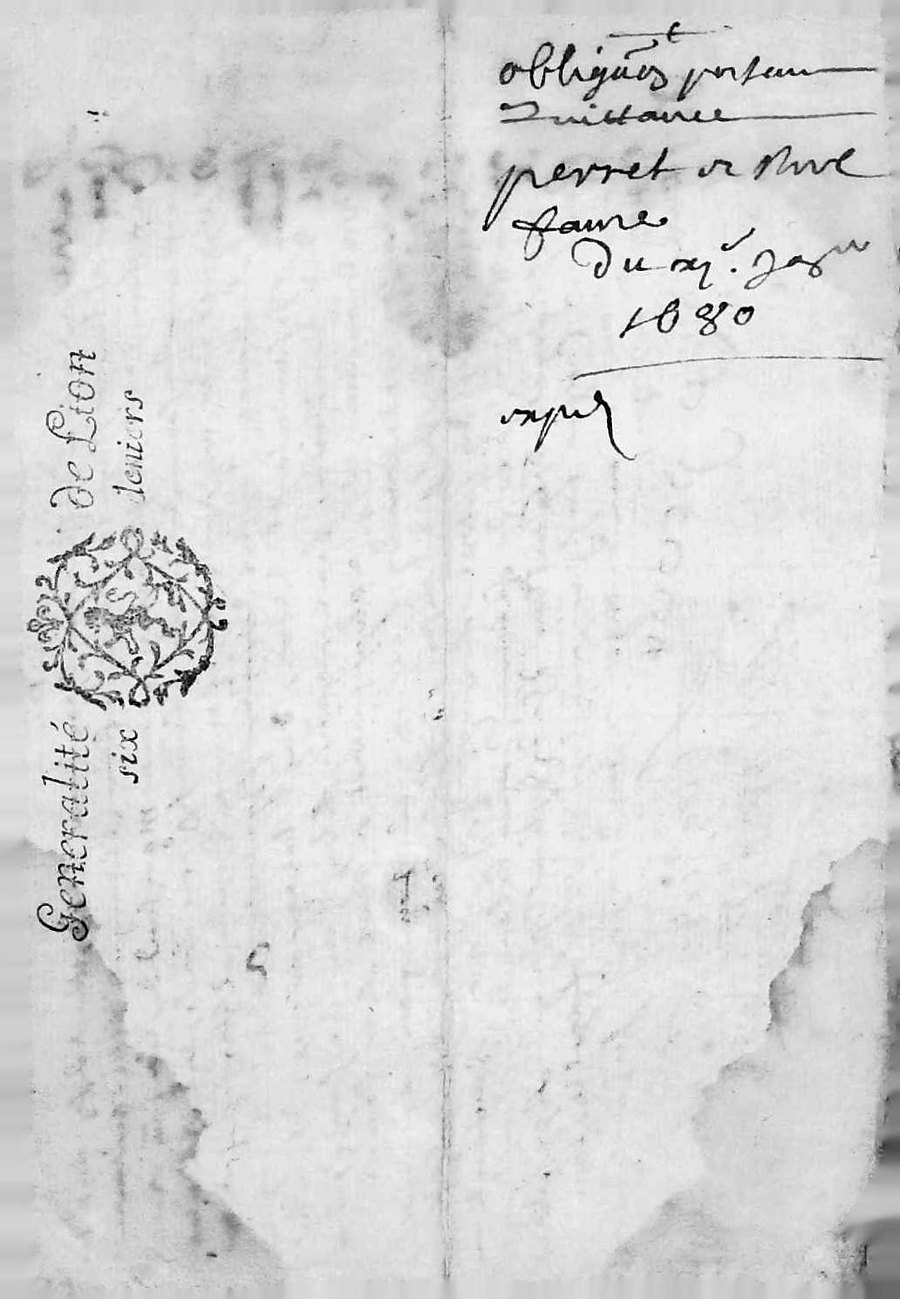 obligãoñ portant
quittance
perret
faure
du xje. Janer
1680
expé
Generalité de Lion
six deniers